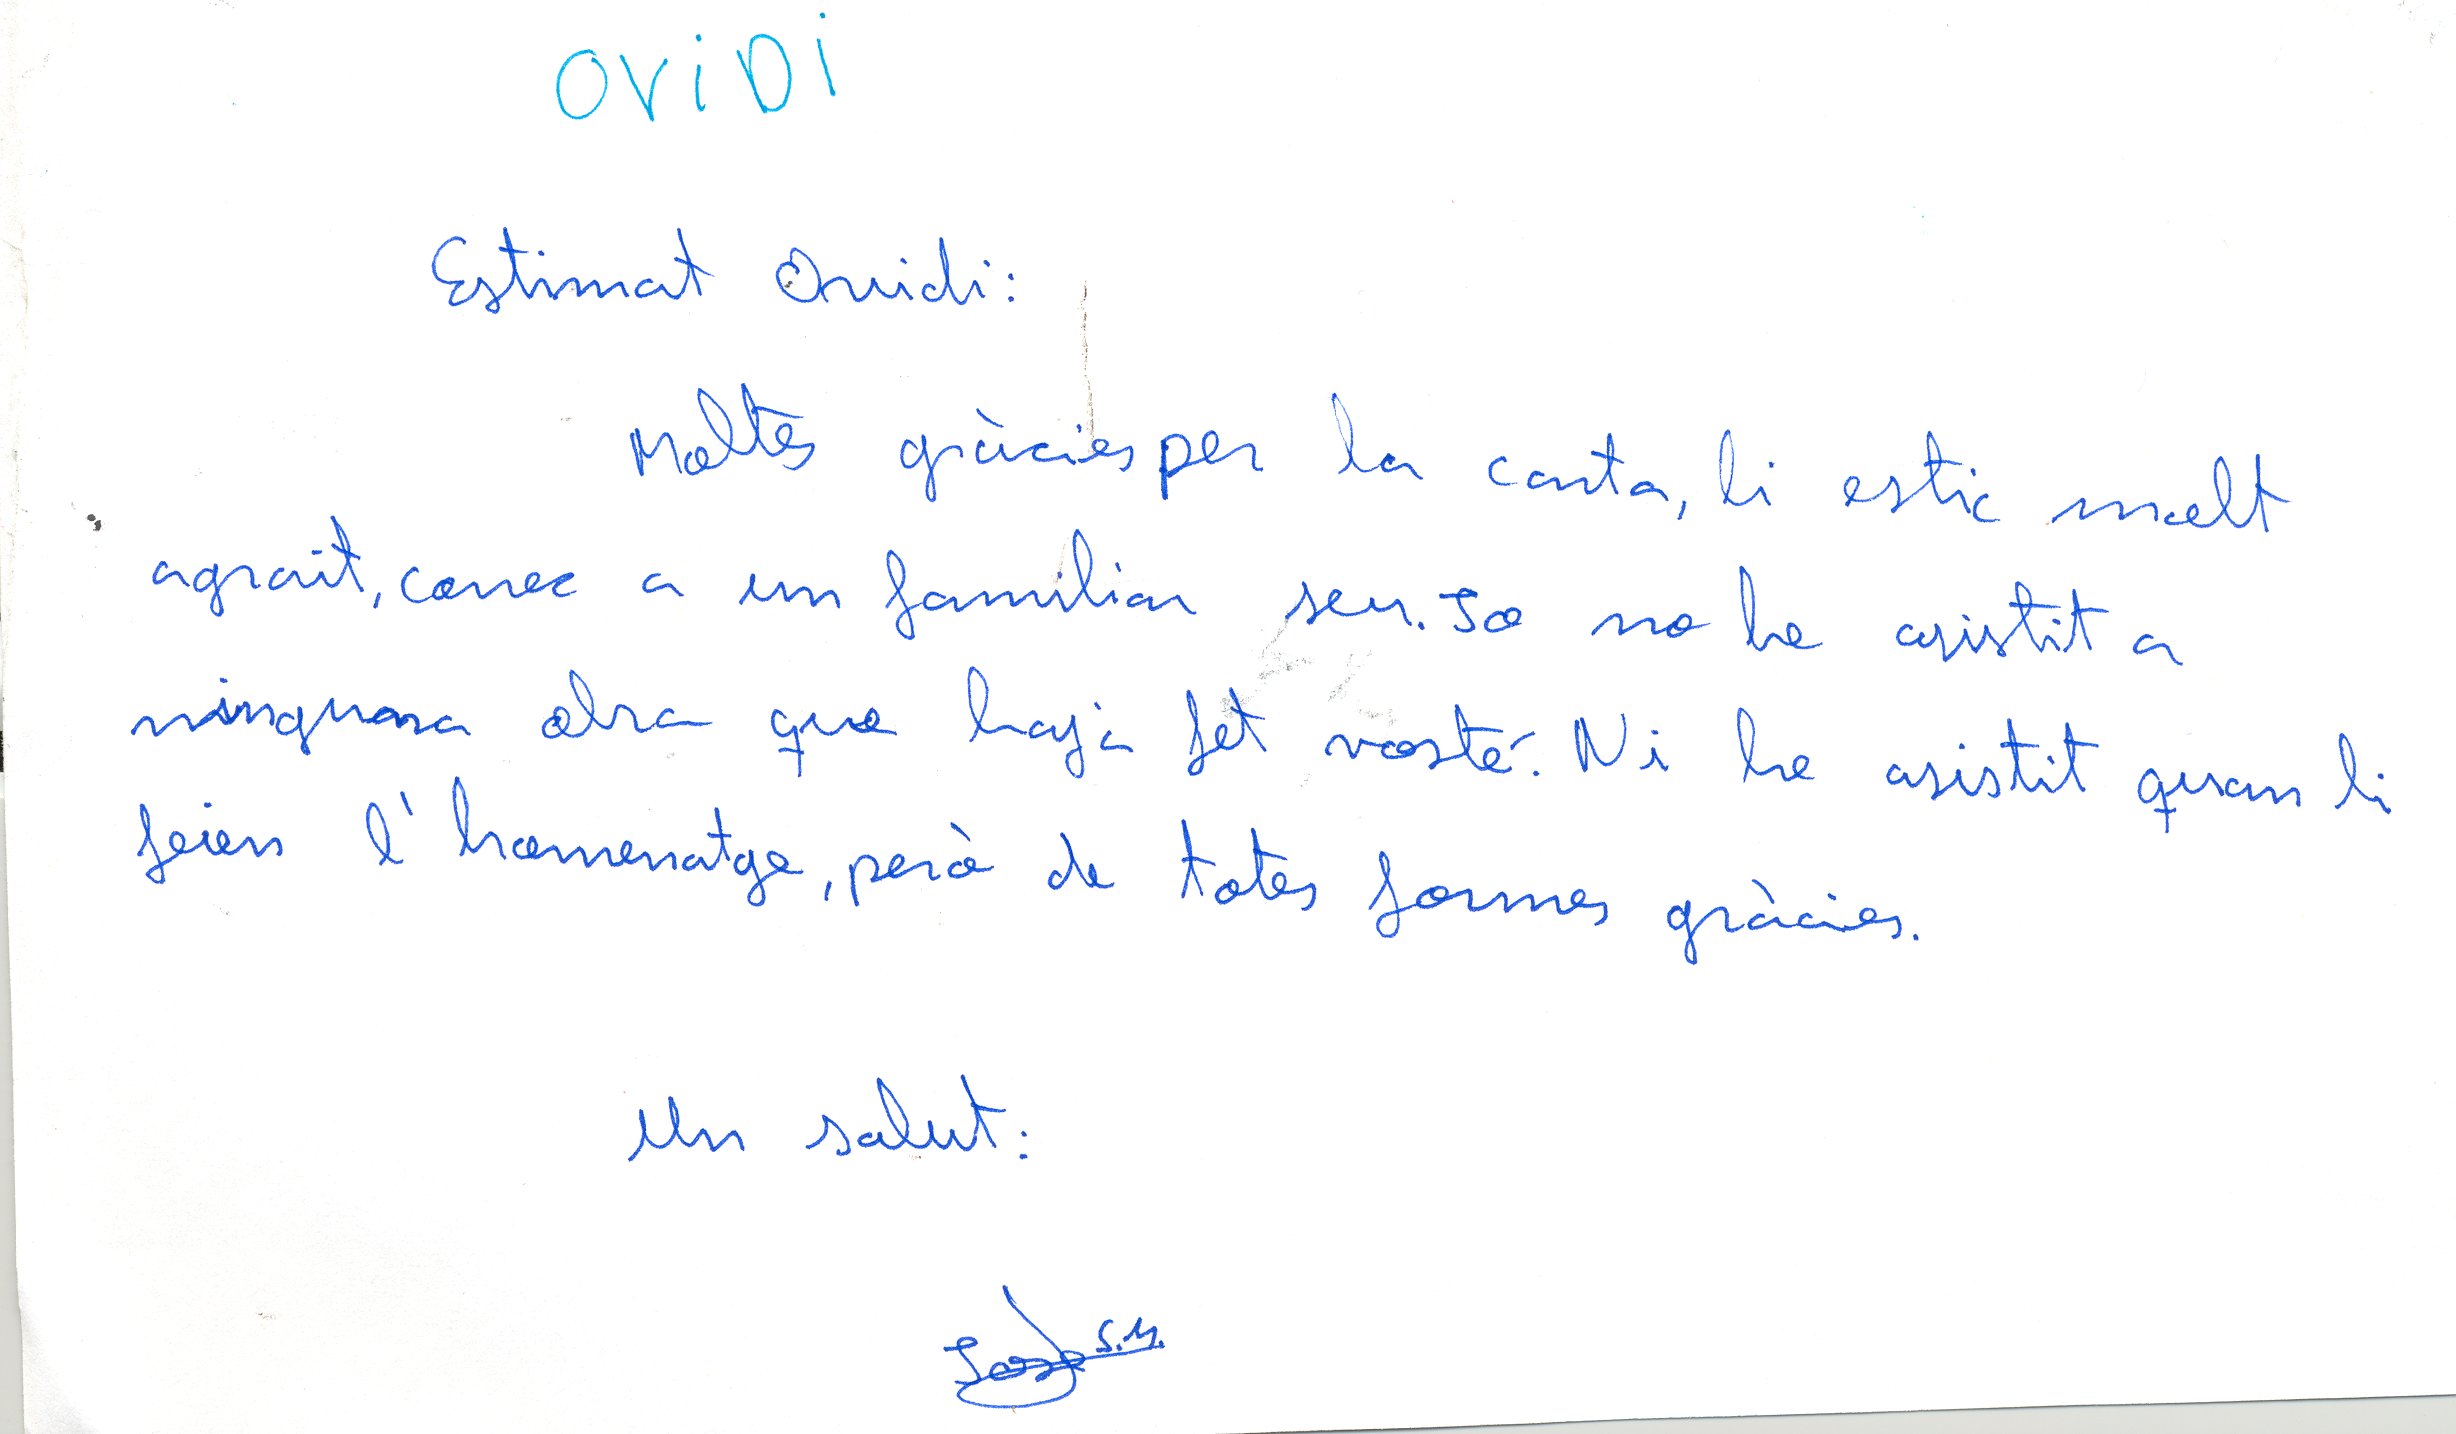 OViDi
Estimat Ovidi:
Moltes gràcies per la carta, li estic molt
agrait, conec a un familiar seu. Jo no he asistit a
ninguna obra que haja fet vosté. Ni he asistit quan li
feien l'homenatge, però de totes formes gràcies.
Un salut:
S.M.